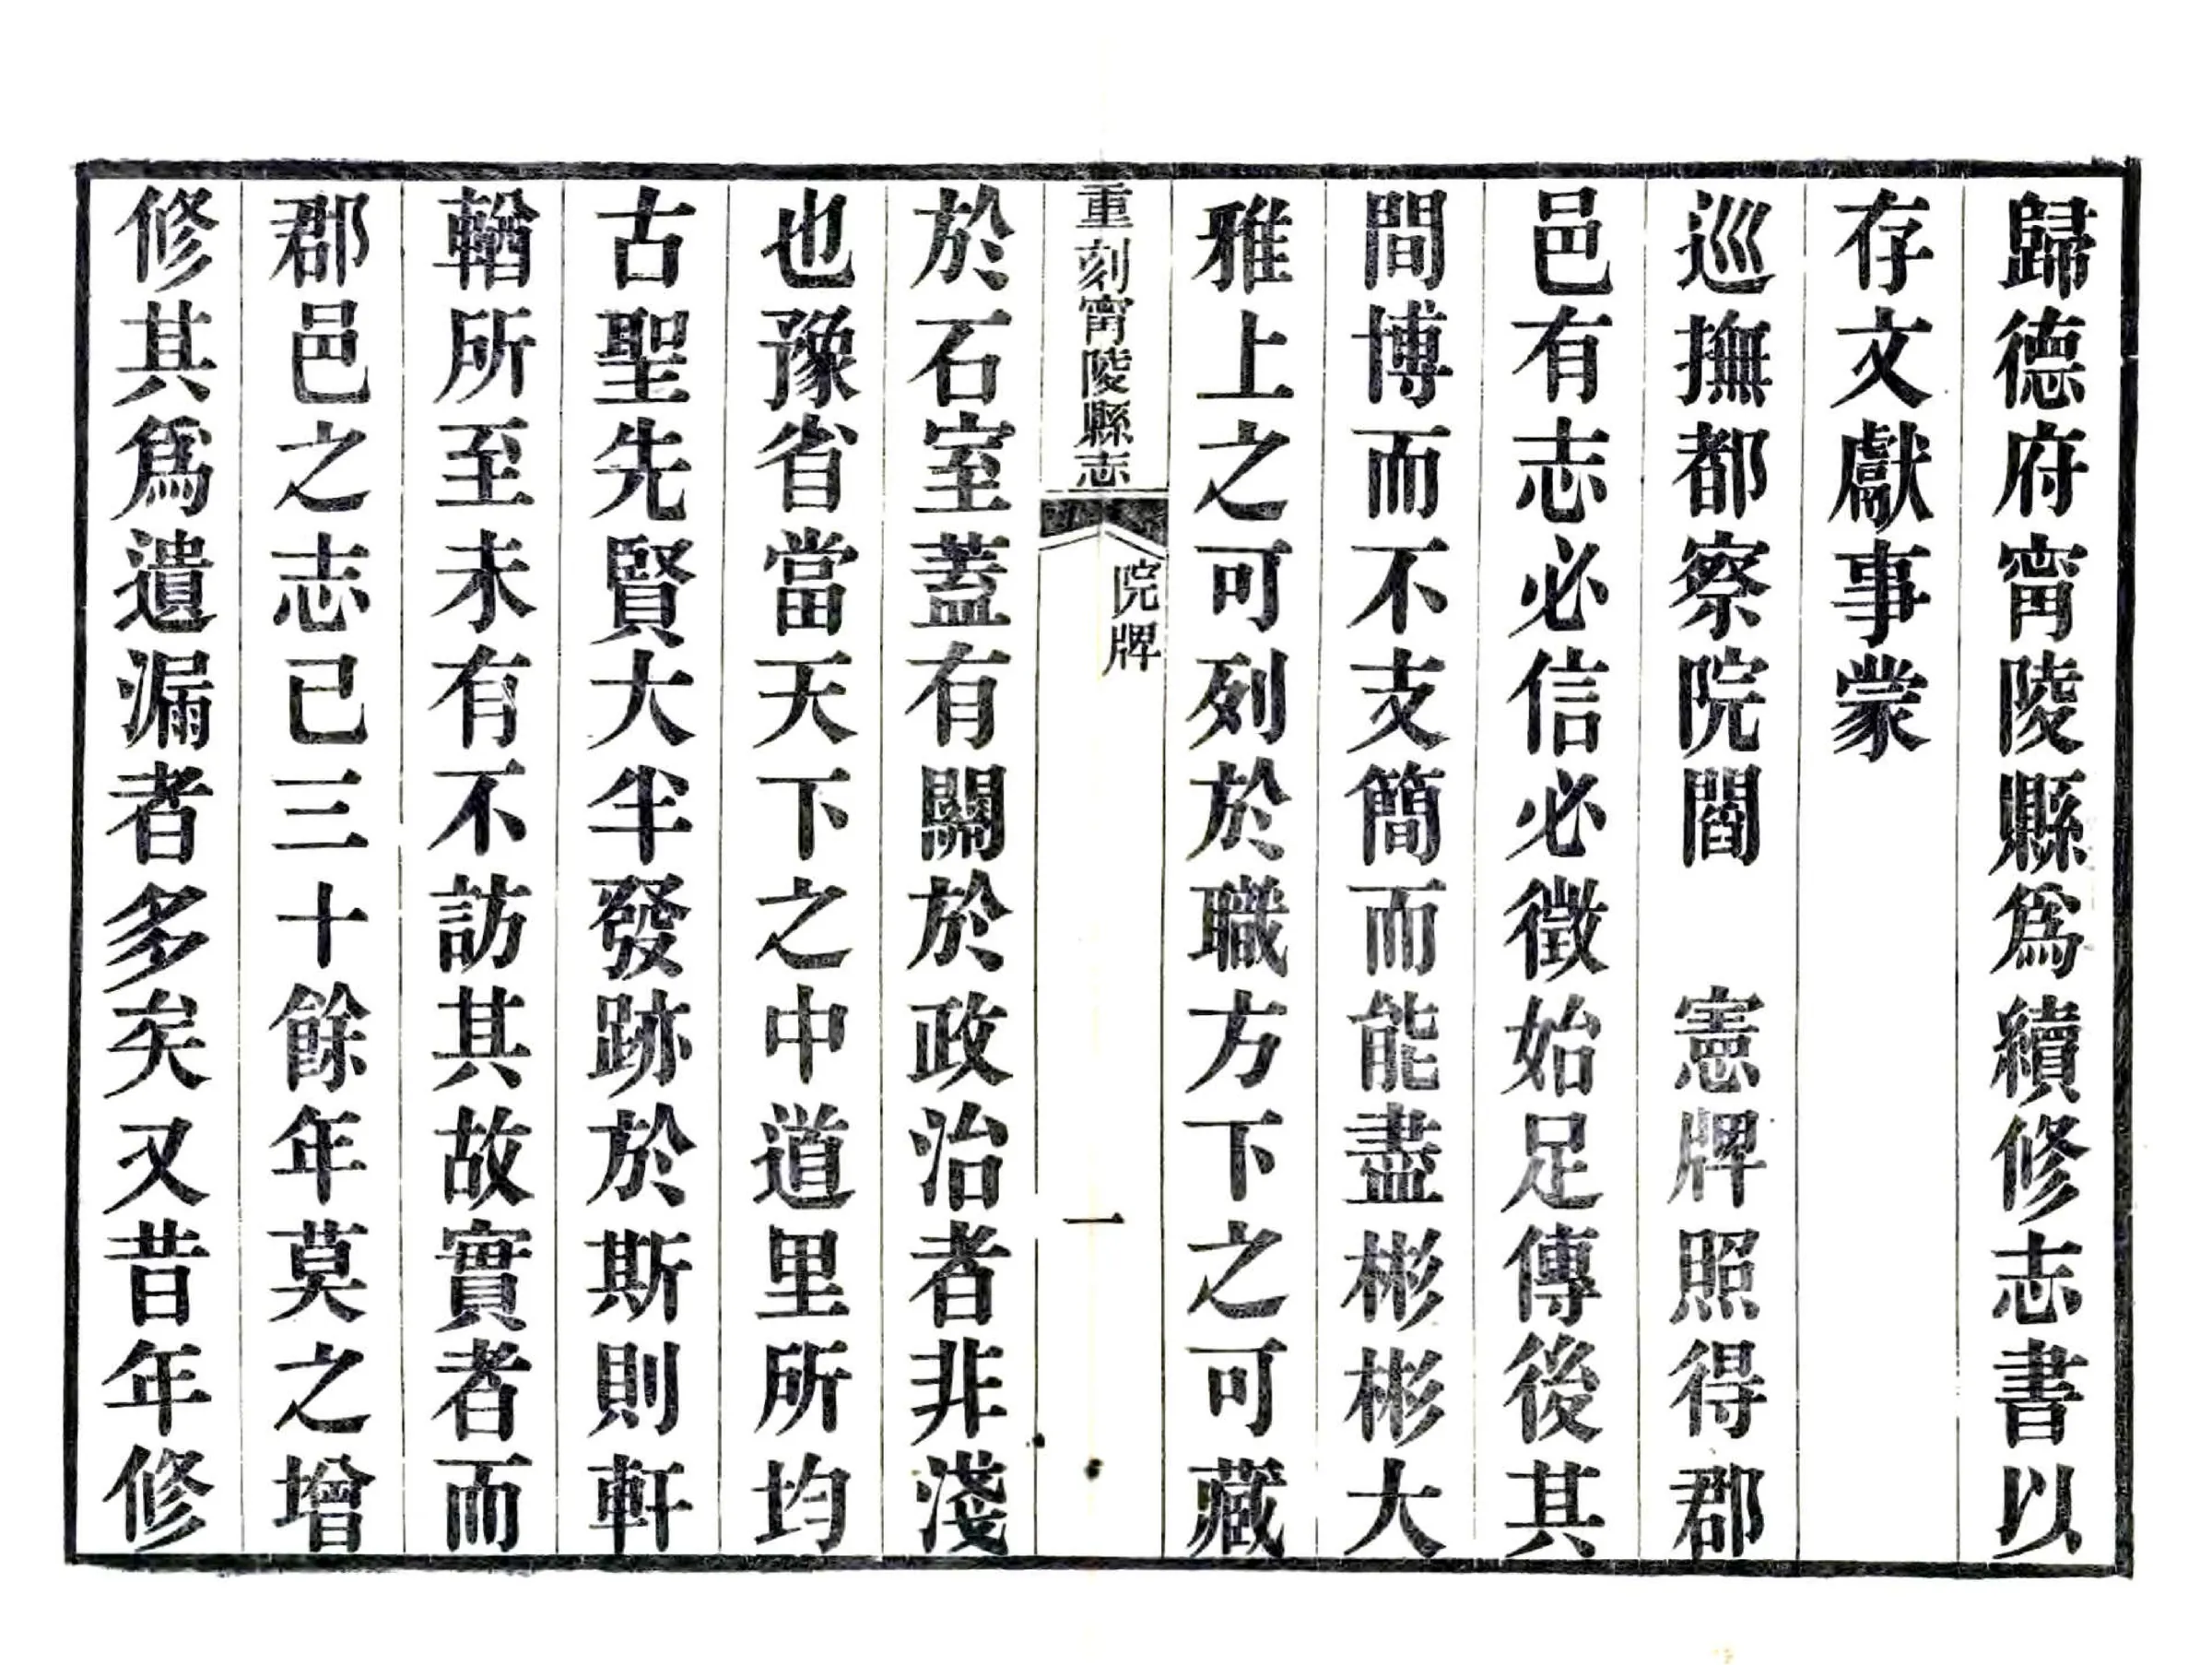 歸德府甯陵縣爲續修志書以
存文獻事蒙
巡撫都察院閻　憲牌照得郡
邑有志必信必徵始足傳後其
間博而不支簡而能盡彬彬大
雅上之可列於職方下之可藏
重刻甯陵縣志
院牌
一
於石室蓋有關於政治者非淺
也豫省當天下之中道里所均
古聖先賢大半發跡於斯則軒
輶所至未有不訪其故實者而
郡邑之志已三十餘年莫之增
修其爲遺漏者多矣又昔年修